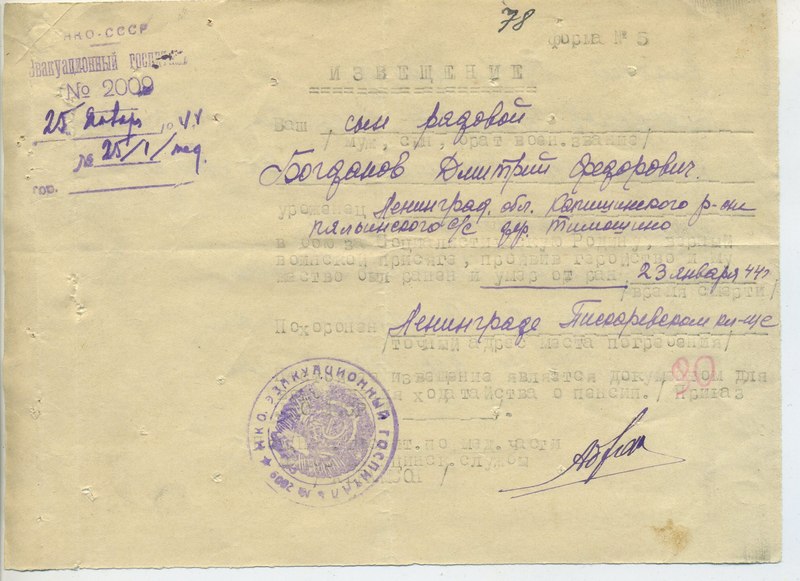 78
Форма № 5
НКО-СССР
Эвакуационный госпиталь
№ 2009
25 январь 1944
№ 25/1/мед.
гор.
ИЗВЕЩЕНИЕ
Ваш сын рядовой
/муж, сын, брат воен.звание/
Богданов Дмитрий Федорович.
уроженец Ленинград. обл. Капшинского р-на
Пяльинского с/с дер. Тимошино
в бою за Социалистическую Родину, верный
воинской присяге, проявив геройство и му
жество был ранен и умер от ран 23 января 44г
/время смерти/
Похоронен Ленинграде Пискаревском кл-ще
/точный адрес места погребения/
извещение является документом для
ходатайства о пенсии. /Приказ
20
т.по мед.части
цинск.службы
НКО. ЭВАКУАЦИОННЫЙ ГОСПИТАЛЬ № 2009